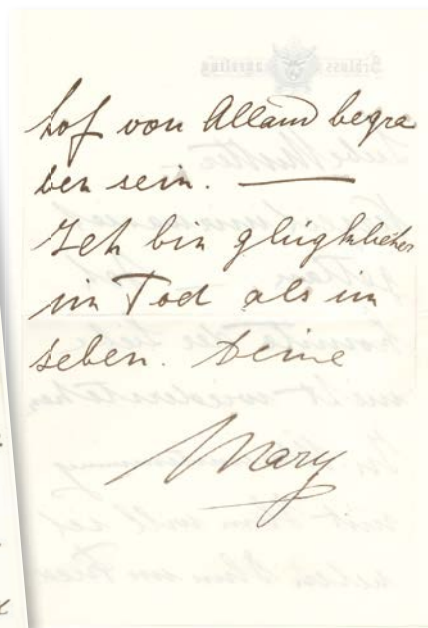 hof von Alland begra
ben sein. —
Ich bin glügklicher
im Tod als im
Leben. Deine
Mary